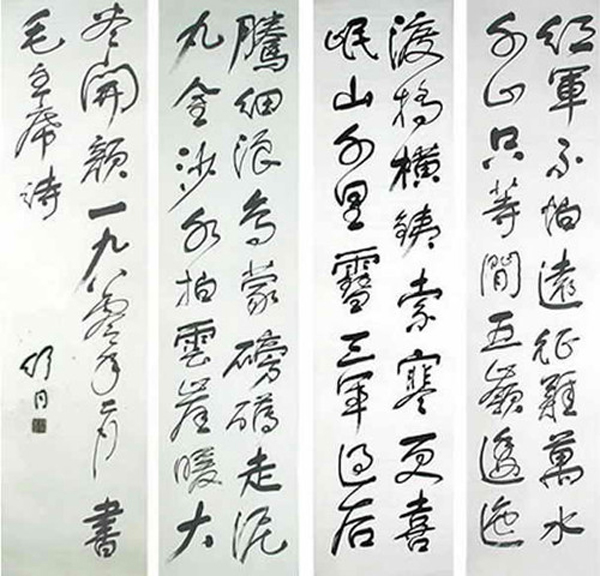 紅軍不怕遠征難萬水
千山只等閒五嶺逶迤
渡橋橫鐵索寒更喜
岷山千里雪三軍過后
騰細浪烏蒙磅礴走泥
丸金沙水拍雲崖暖大
尽開顏一九八零年二月書
毛主席詩
舒同